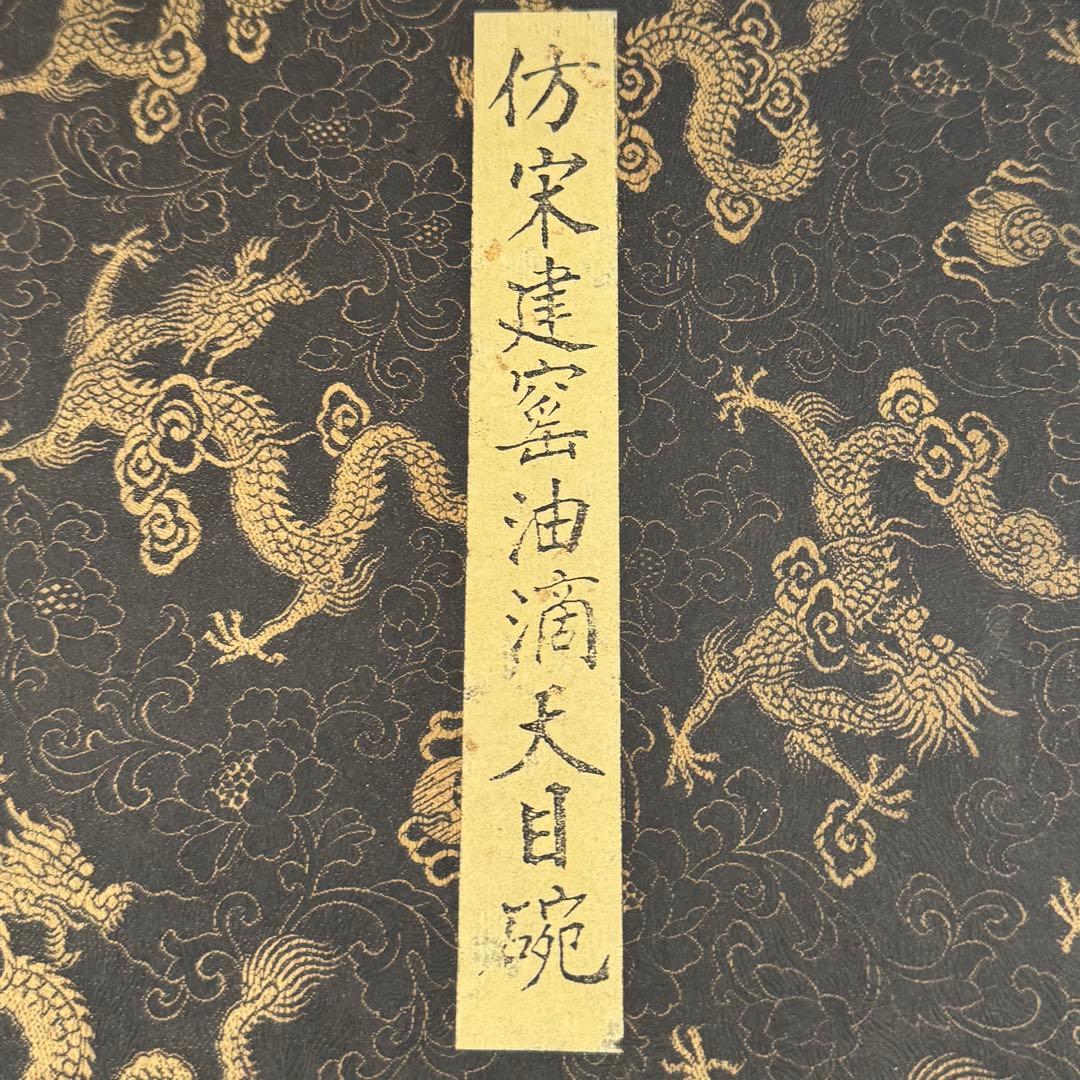 仿宋建窑油滴天目碗